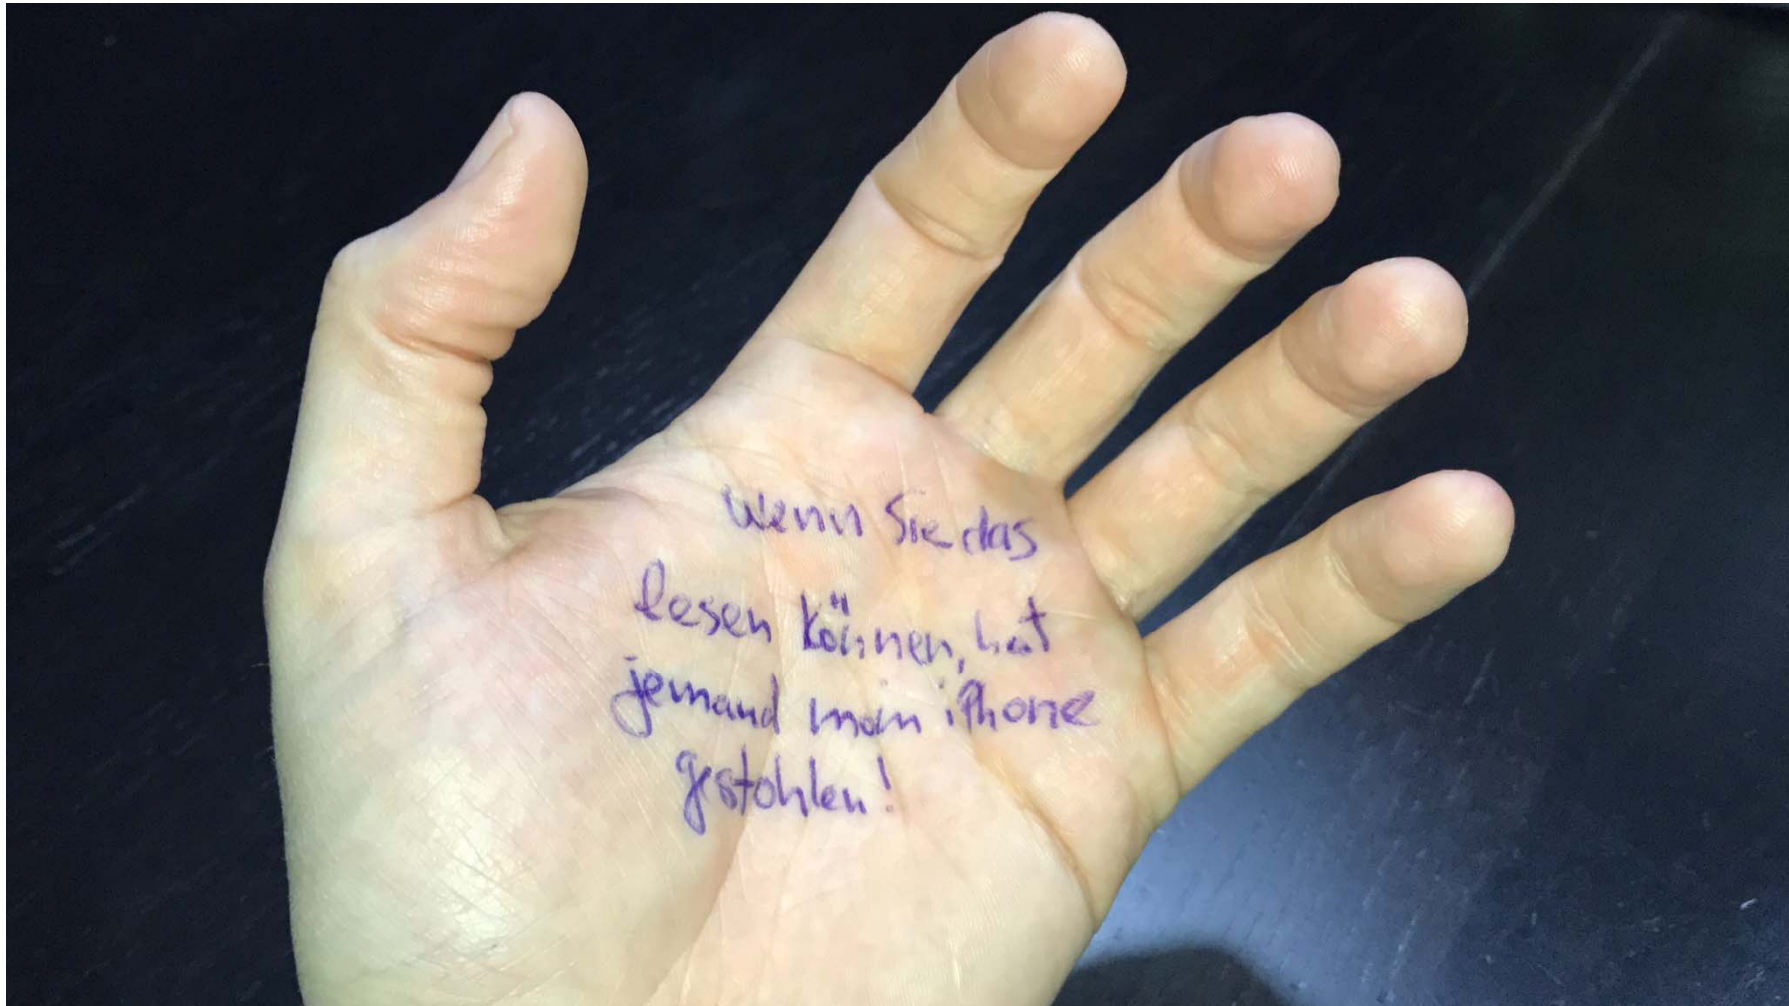 Wenn Sie das
lesen können, hat
jemand mein iPhone
gestohlen!